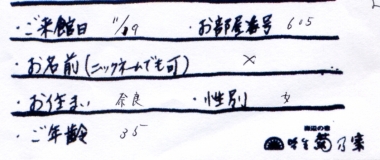 ・ご来館日 11/29 ・お部屋番号 605
・お名前(ニックネームでも可) ×
・お住まい 奈良 ・性別 女
・ご年齢 35